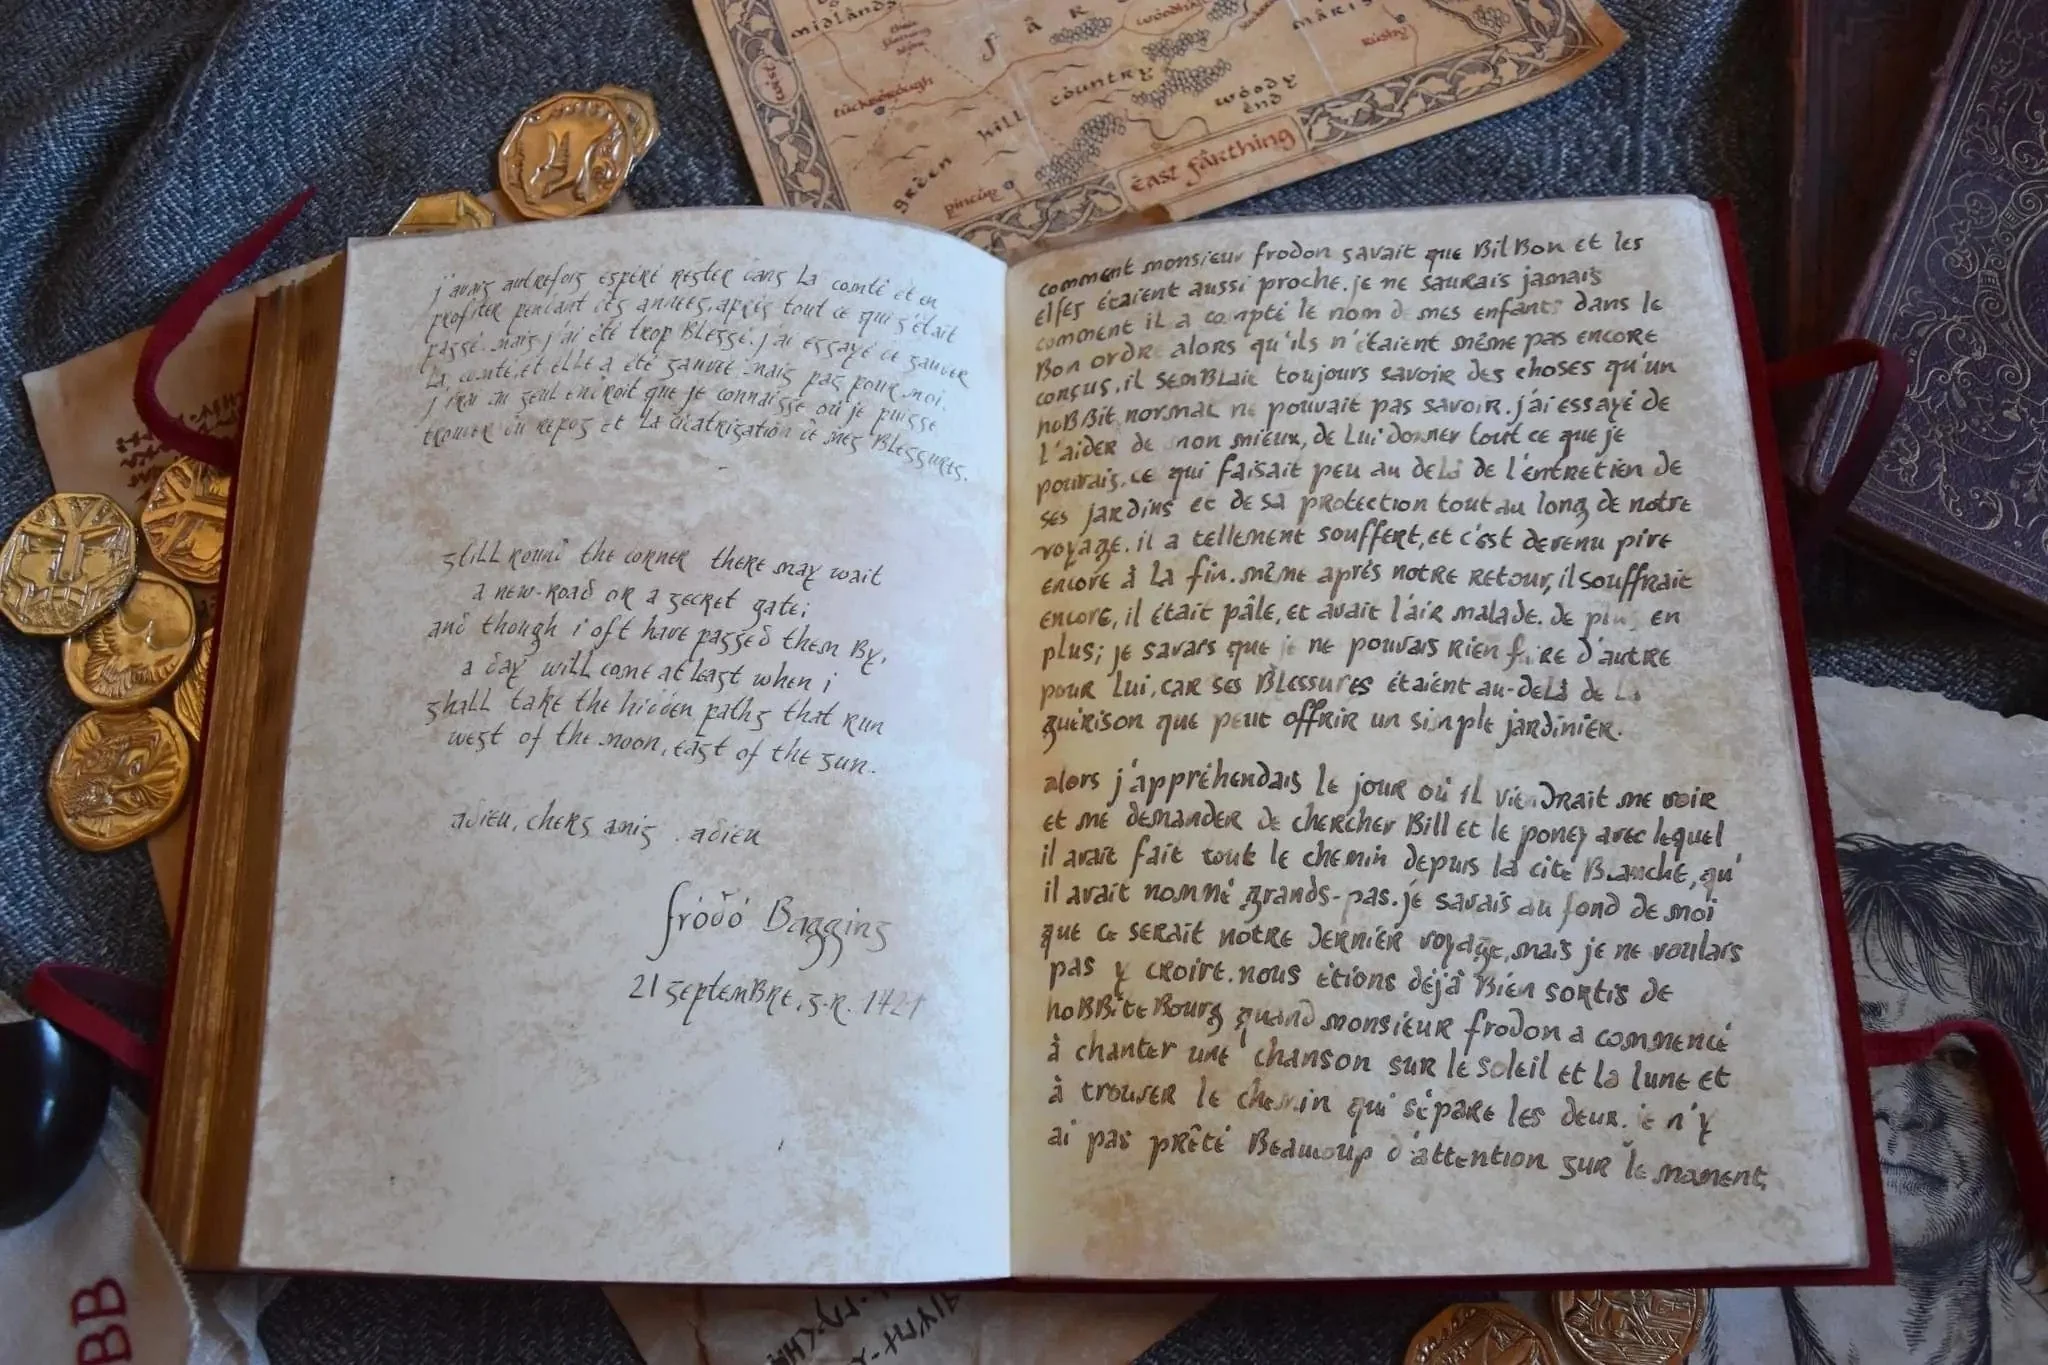 midlands
fâr
woodhall
maris
Rushy
East
tuckborough
country
woody
End
hill
green
pincup
East farthing
j'avais autrefois espéré rester dans la comté et en
profiter pendant des années, après tout ce qui s'était
passé. mais j'ai été trop blessé. j'ai essayé de sauver
la comté, et elle a été sauvée, mais pas pour moi.
j'irai au seul endroit que je connaisse où je puisse
trouver du repos et la cicatrisation de mes blessures.
still round the corner there may wait
a new-road or a secret gate;
and though i oft have passed them by,
a day will come at last when i
shall take the hidden paths that run
west of the moon, east of the sun.
adieu, chers amis. adieu
frodo Baggins
21 septembre, s.r. 1421
comment monsieur frodon savait que Bilbon et les
elfes étaient aussi proche. je ne saurais jamais
comment il a compté le nom de mes enfants dans le
bon ordre alors qu'ils n'étaient même pas encore
conçus, il semblait toujours savoir des choses qu'un
hobbit normal ne pouvait pas savoir. j'ai essayé de
l'aider de mon mieux, de lui donner tout ce que je
pouvais. ce qui faisait peu au delà de l'entretien de
ses jardins et de sa protection tout au long de notre
voyage. il a tellement souffert, et c'est devenu pire
encore à la fin. même après notre retour, il souffrait
encore, il était pâle, et avait l'air malade. de plus en
plus; je savais que je ne pouvais rien faire d'autre
pour lui, car ses blessures étaient au-delà de la
guérison que peut offrir un simple jardinier.
alors j'appréhendais le jour où il viendrait me voir
et me demander de chercher Bill et le poney avec lequel
il avait fait tout le chemin depuis la cité Blanche, qu'
il avait nommé grands-pas. je savais au fond de moi
que ce serait notre dernier voyage, mais je ne voulais
pas y croire. nous étions déjà bien sortis de
hobbitebourg quand monsieur frodon a commencé
à chanter une chanson sur le soleil et la lune et
à trouver le chemin qui sépare les deux. je n'y
ai pas prêté beaucoup d'attention sur le moment,
BB